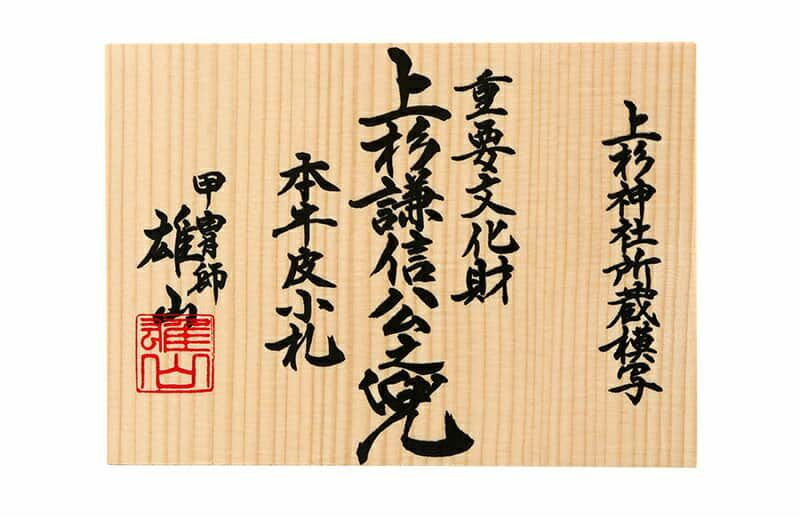 上杉神社所蔵模写
重要文化財
上杉謙信公之兜
本牛皮小札
甲冑師
雄山
雄山